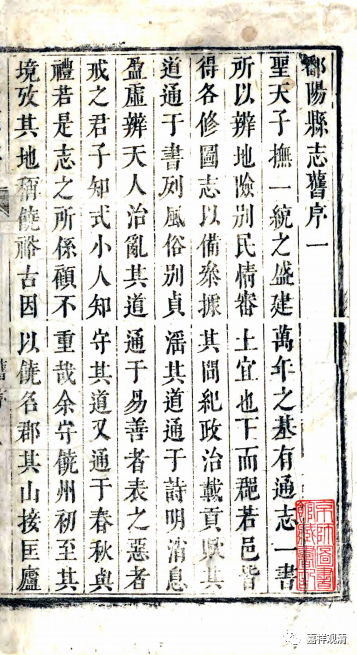 鄱陽縣志舊序一
聖天子撫一統之盛建萬年之基有通志一書
所以辨地險别民情審土宜也下而郡若邑皆
得各修圖志以備叅據其間紀政治載貢賦其
道通于書列風俗别貞滛其道通于詩明消息
盈虛辨天人治亂其道通于易善者表之惡者
戒之君子知式小人知守其道又通于春秋與
禮若是志之所係顧不重哉余守饒州初至其
境攷其地稱饒裕古因以饒名郡其山接匡廬
京師圖書
館藏書記